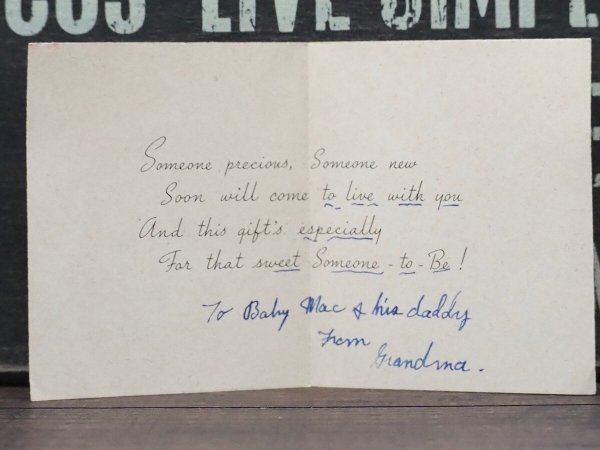 LIVE SIMPL
Someone precious, Someone new
Soon will come to live with you
And this gift's especially
For that sweet Someone-to-Be!
To Baby Mac & his daddy
From
Grandma.